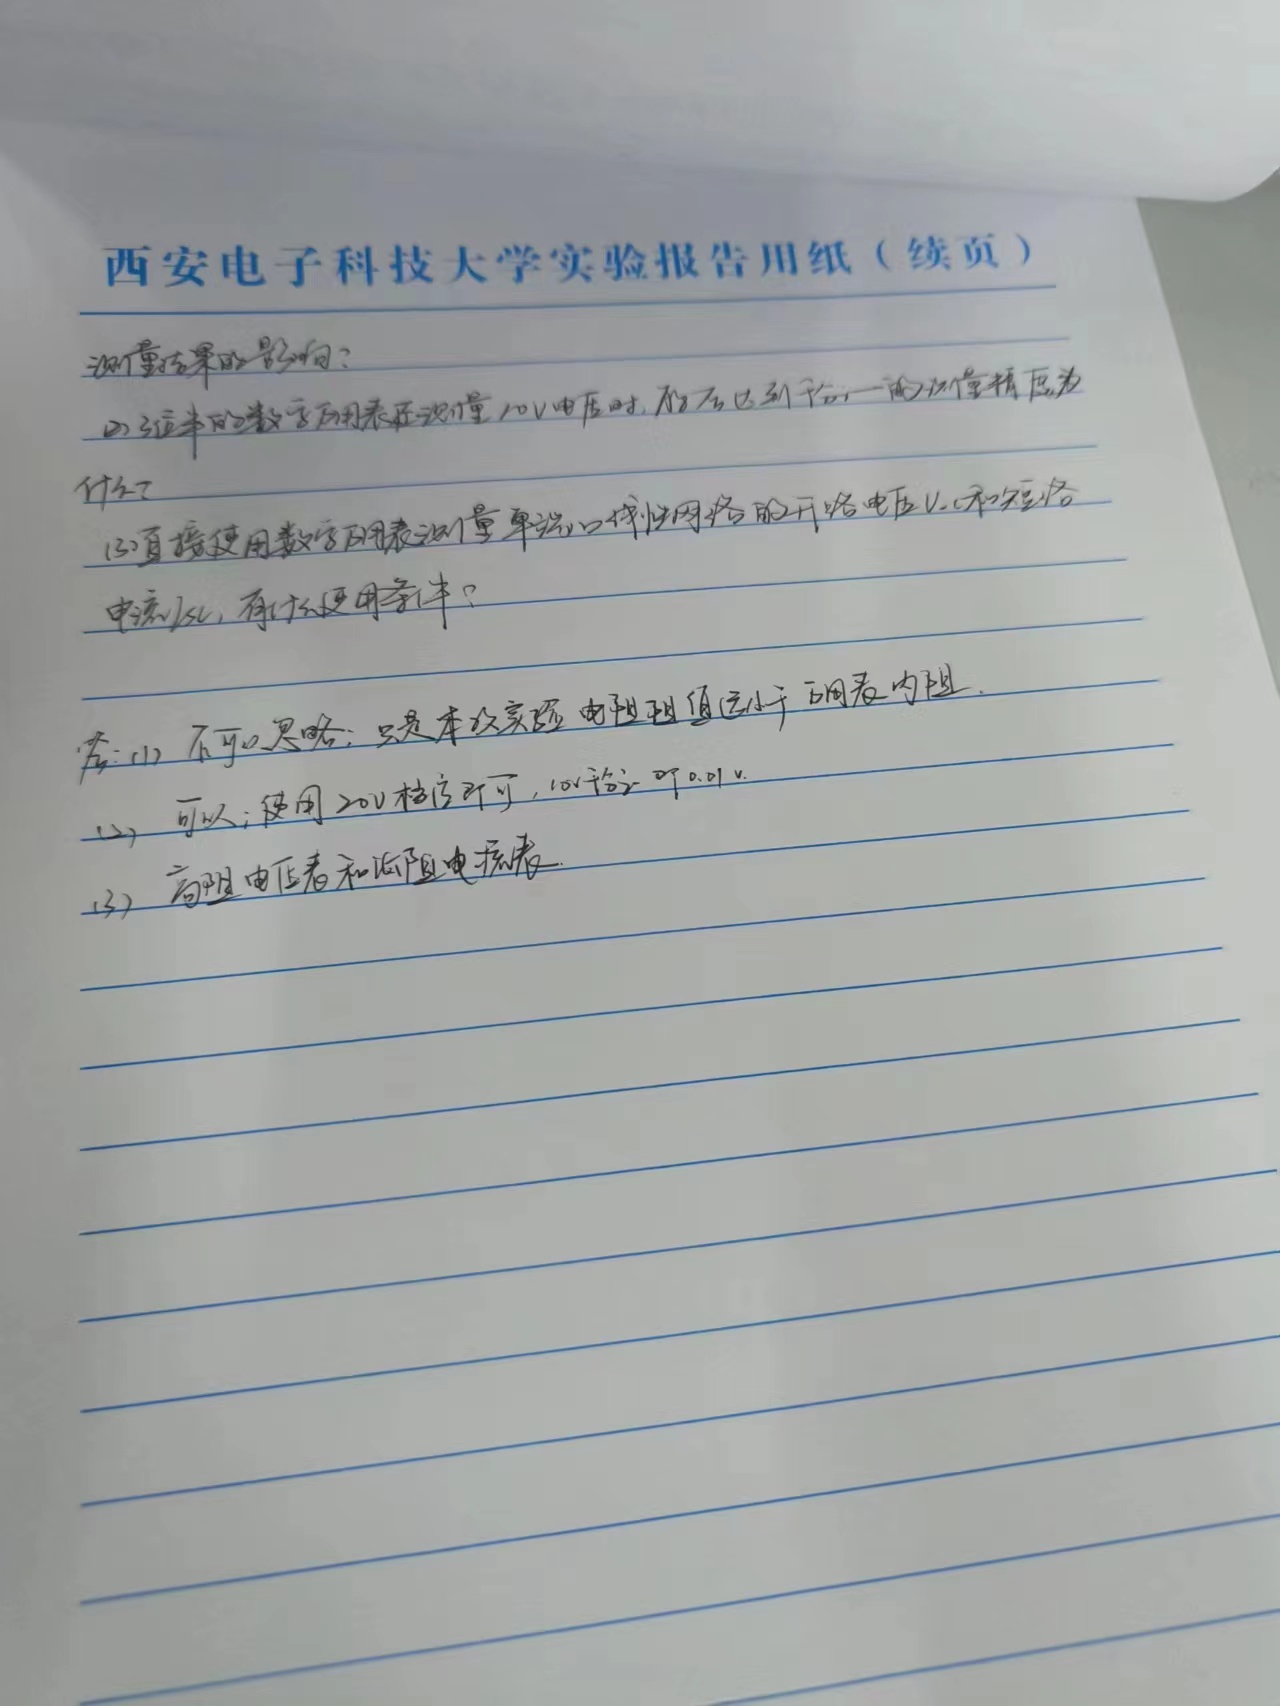 西安电子科技大学实验报告用纸（续页）
测量结果的影响？
(2) 3位半的数字万用表在测量10V电压时，能否达到千分之一的测量精度为
什么？
(3) 直接使用数字万用表测量单端口线性网络的开路电压Voc和短路
电流Isc，有什么使用条件？
答：(1) 不可以忽略；只是本次实验电阻阻值远小于万用表内阻.
(2) 可以；使用20V档位即可，10V千分之一即0.01V.
(3) 高阻电压表和低阻电流表.